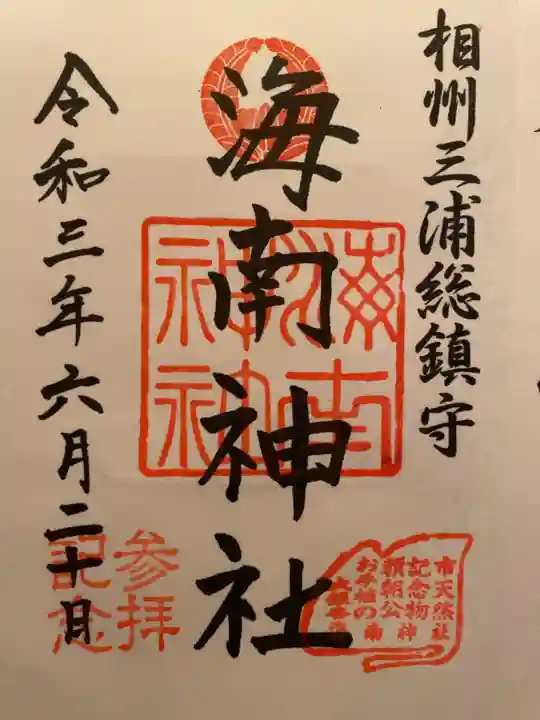 相州三浦総鎮守
海南神社
令和三年六月二十日
海南
神社
参拝
記念
市天然
記念物
頼朝公
お手植の